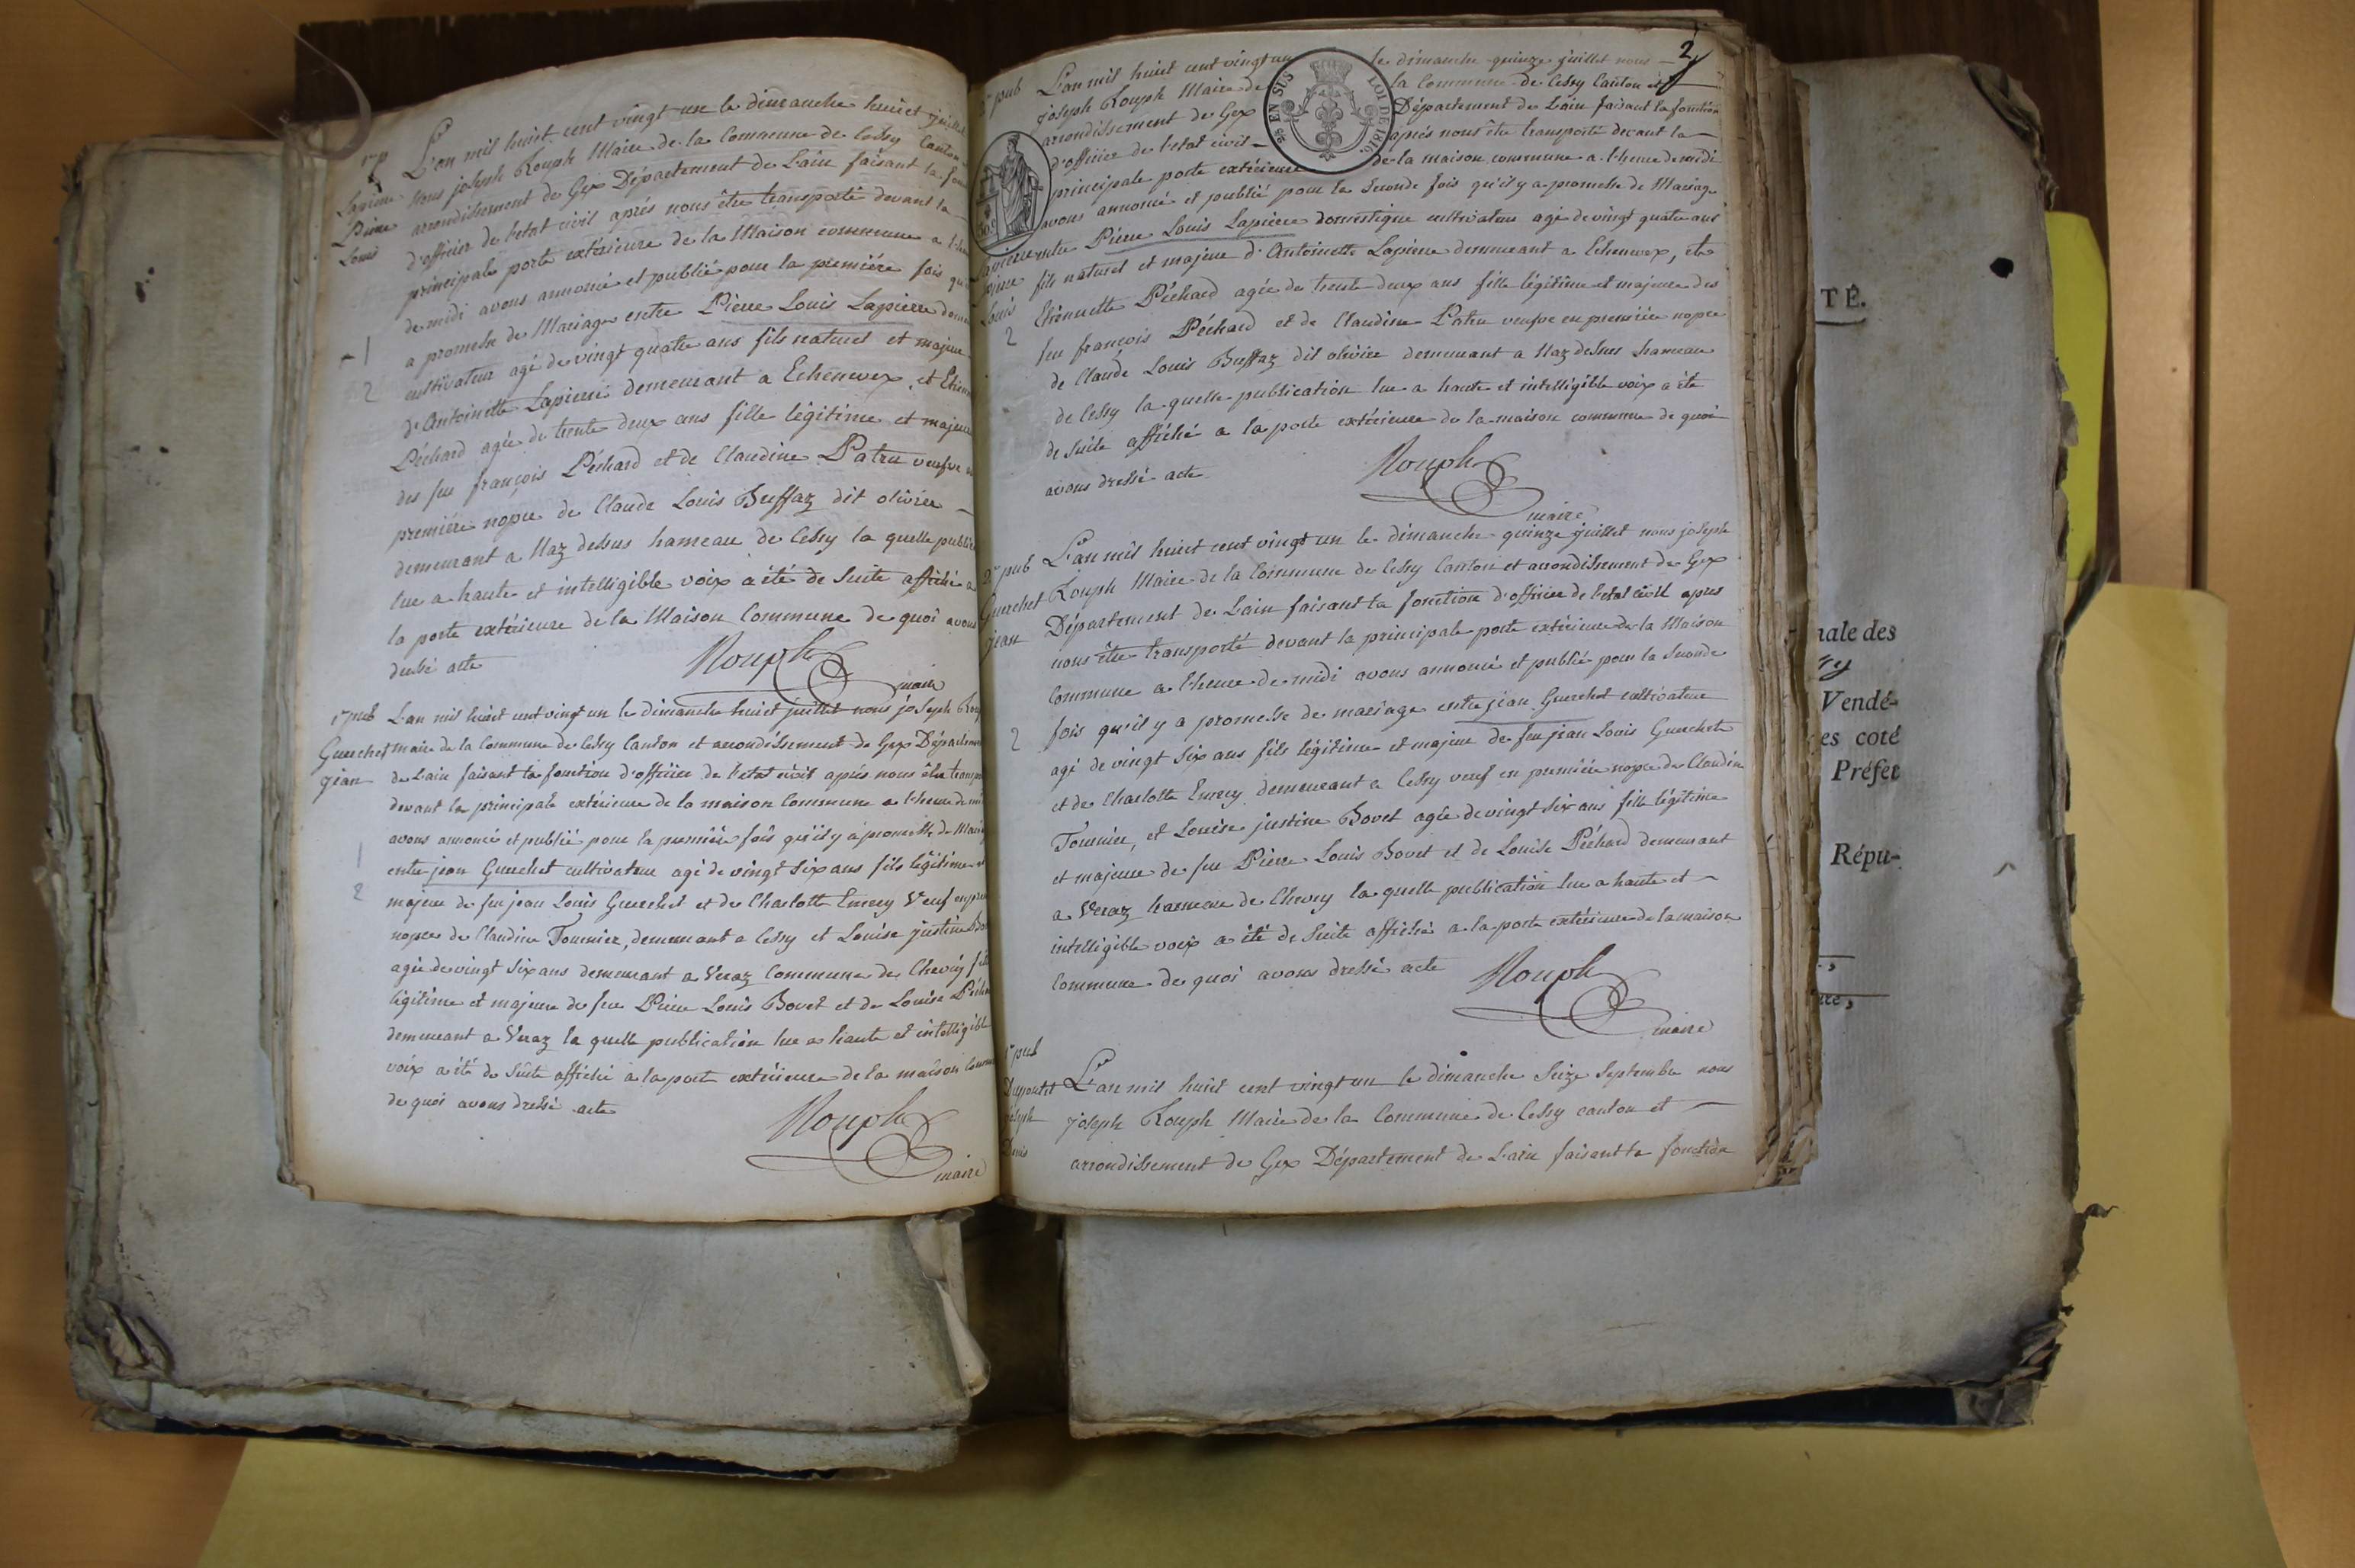 1re p
Lapierre
Pierre
Louis
L'an mil huit cent vingt un le dimanche huit juillet
nous joseph Rouph Maire de la Commune de Cessy Canton
arrondissement de Gex Département de L'ain faisant la
d'officier de l'etat civil aprés nous être transporté devant la
principale porte extérieure de la Maison commune a
de midi avons annoncé et publié pour la premiére fois
a promesse de Mariage entre Pierre Louis Lapierre
cultivateur agé de vingt quatre ans fils naturel et majeur
d'Antoinette Lapierre demeurant a Echenevex, et
Péchard agée de trente deux ans fille légitime et majeure
des feu françois Péchard et de Claudine Patru veufve
premiére nopce de Claude Louis Buffaz dit olivier
demeurant a Naz dessus hameau de Cessy la quelle
lue a haute et intelligible voix a été de suite affiché a
la porte extérieure de la Maison Commune de quoi avons
dressé acte
Rouph
maire
1
2
1re pub
Guerchet
jean
L'an mil huit cent vingt un le dimanche huit juillet nous joseph
maire de la Commune de Cessy Canton et arrondissement de Gex
de L'ain faisant la fonction d'officier de l'etat civil aprés nous être
devant la principale extérieure de la maison Commune a l'heure de
avons annoncé et publié pour la premiére fois qu'il y a promesse de
entre jean Guerchet cultivateur agé de vingt six ans fils légitime et
majeur de feu jean Louis Guerchet et de Charlotte Emery Veuf
nopce de Claudine Fournier, demeurant a Cessy et Louise justine
agée de vingt six ans demeurant a Veraz Commune de Chevry
légitime et majeure de feu Pierre Louis Bovet et de Louise
demeurant a Veraz la quelle publication lue a haute et intelligible
voix a été de suite affiché a la porte extérieure de la maison
de quoi avons dressé acte
Rouph
maire
1
2
2
2e pub
Lapierre
pierre
Louis
2
L'an mil huit cent vingt un le dimanche quinze juillet nous
joseph Rouph Maire de la Commune de Cessy Canton et
arrondissement de Gex Département de L'ain faisant la fonction
d'officier de l'etat civil aprés nous être transporté devant la
principale porte extérieure de la maison commune a l'heure de midi
avons annoncé et publié pour la seconde fois qu'il y a promesse de Mariage
entre Pierre Louis Lapierre domestique cultivateur agé de vingt quatre ans
fils naturel et majeur d'Antoinette Lapierre demeurant a Echenevex, et
Etiennette Péchard agée de trente deux ans fille légitime et majeure des
feu françois Péchard et de Claudine Patru veufve en premiére nopce
de Claude Louis Buffaz dit olivier demeurant a Naz dessus hameau
de Cessy la quelle publication lue a haute et intelligible voix a été
de suite affiché a la porte extérieure de la maison commune de quoi
avons dressé acte
Rouph
maire
2e pub
Guerchet
jean
2
L'an mil huit cent vingt un le dimanche quinze juillet nous joseph
Rouph Maire de la Commune de Cessy Canton et arrondissement de Gex
Département de L'ain faisant la fonction d'officier de l'etat civil apres
nous être transporté devant la principale porte extérieure de la Maison
Commune a l'heure de midi avons annoncé et publié pour la seconde
fois qu'il y a promesse de mariage entre jean Guerchet cultivateur
agé de vingt six ans fils légitime et majeur de feu jean Louis Guerchet
et de Charlotte Emery demeurant a Cessy veuf en premiére nopce de Claudine
Fournier, et Louise justine Bovet agée de vingt six ans fille légitime
et majeure de feu Pierre Louis Bovet et de Louise Péchard demeurant
a Veraz hameau de Chevry la quelle publication lue a haute et
intelligible voix a été de suite affiché a la porte extérieure de la maison
Commune de quoi avons dressé acte
Rouph
maire
1re pub
joseph
L'an mil huit cent vingt un le dimanche seize Septembre nous
joseph Rouph Maire de la Commune de Cessy canton et
arrondissement de Gex Département de L'ain faisant la fonction
EN SUS
LOI DE 1816.
TÉ.
nale des
Vendé-
es coté
Préfet
Répu-